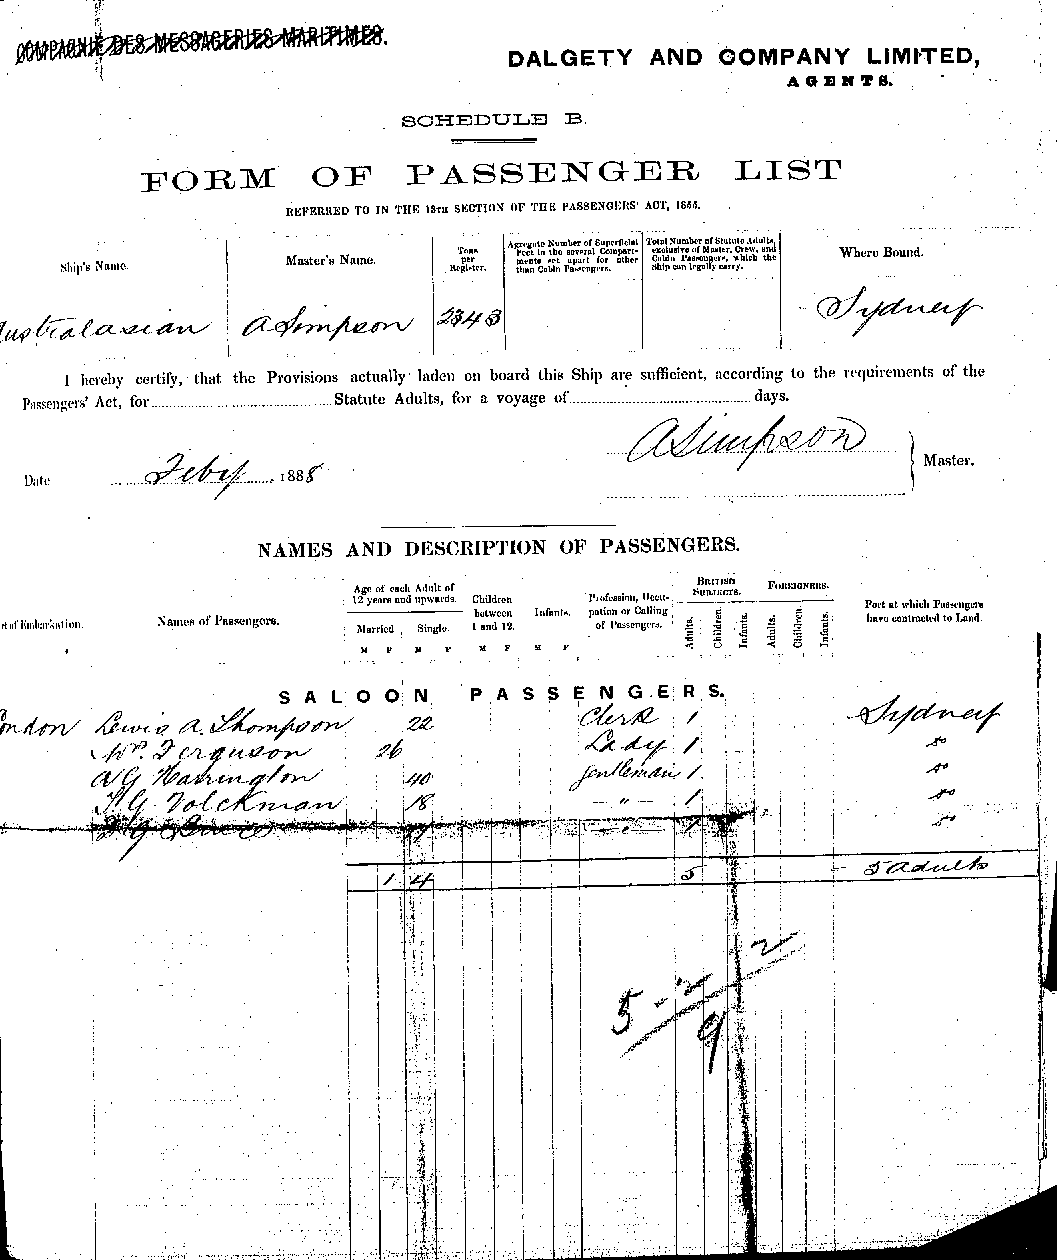 COMPAGNIE DES MESSAGERIES MARITIMES.
DALGETY AND COMPANY LIMITED,
AGENTS.
SCHEDULE B.
FORM OF PASSENGER LIST
REFERRED TO IN THE 13TH SECTION OF THE PASSENGERS' ACT, 1855.
Ship's Name. Master's Name. Tons per Register. Agregate Number of Superficial Feet in the several Compartments set apart for other than Cabin Passengers. Total Number of Statute Adults, exclusive of Master, Crew, and Cabin Passengers, which the Ship can legally carry. Where Bound.
Australasian A Simpson 2343 Sydney
I hereby certify, that the Provisions actually laden on board this Ship are sufficient, according to the requirements of the
Passengers' Act, for Statute Adults, for a voyage of days.
A Simpson
Date Feby 1888 Master.
NAMES AND DESCRIPTION OF PASSENGERS.
t of Embarkation. Names of Passengers. Age of each Adult of 12 years and upwards. Children between 1 and 12. Infants. Profession, Occupation or Calling of Passengers. BRITISH SUBJECTS. FOREIGNERS. Port at which Passengers have contracted to Land.
Married Single. Adults. Children. Infants. Adults. Children. Infants.
M F M F M F M F
SALOON PASSENGERS.
ondon Lewis A. Thompson 22 Clerk 1 Sydney
Mrs. Ferguson 26 Lady 1 do
A G Harrington 40 gentleman 1 do
T. G. Volckman 18 — " — 1 do
— " — 1 do
1 4 5 — 5 adults
5 - 2 2
9